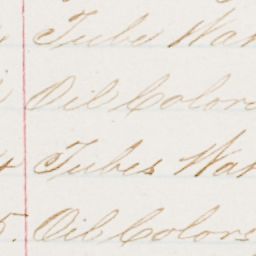 Tubes Wa
Oil Color
Tubes Wa
5. Oil Colors